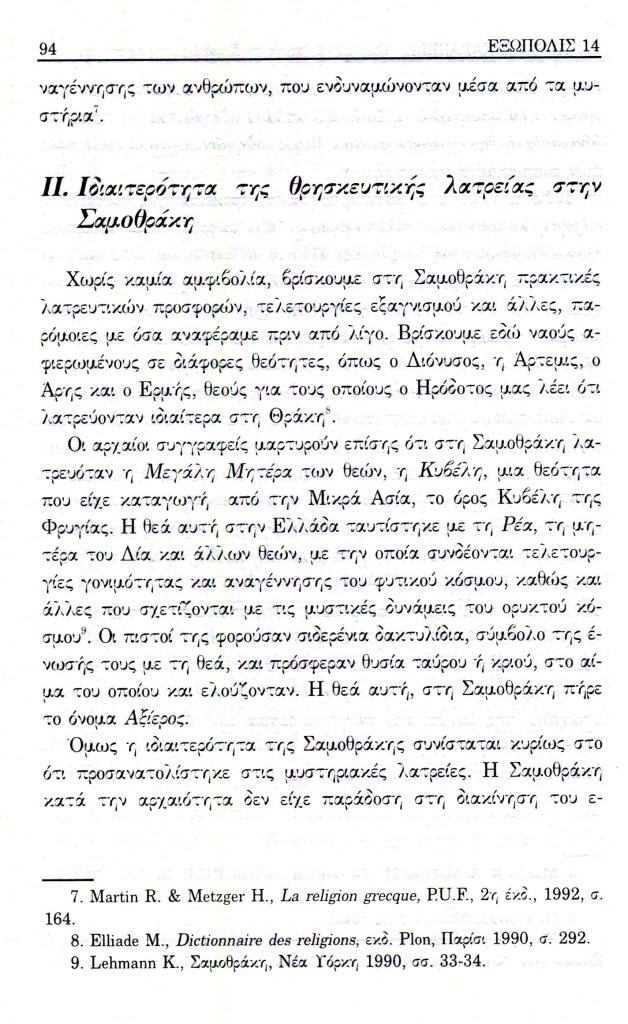 94 ΕΞΩΠΟΛΙΣ 14
ναγέννησης των ανθρώπων, που ενδυναμώνονταν μέσα από τα μυ-
στήρια⁷.
II. Ιδιαιτερότητα της θρησκευτικής λατρείας στην
Σαμοθράκη
Χωρίς καμία αμφιβολία, βρίσκουμε στη Σαμοθράκη πρακτικές
λατρευτικών προσφορών, τελετουργίες εξαγνισμού και άλλες, πα-
ρόμοιες με όσα αναφέραμε πριν από λίγο. Βρίσκουμε εδώ ναούς α-
φιερωμένους σε διάφορες θεότητες, όπως ο Διόνυσος, η Αρτεμις, ο
Αρης και ο Ερμής, θεούς για τους οποίους ο Ηρόδοτος μας λέει ότι
λατρεύονταν ιδιαίτερα στη Θράκη⁸.
Οι αρχαίοι συγγραφείς μαρτυρούν επίσης ότι στη Σαμοθράκη λα-
τρευόταν η Μεγάλη Μητέρα των θεών, η Κυβέλη, μια θεότητα
που είχε καταγωγή από την Μικρά Ασία, το όρος Κυβέλη της
Φρυγίας. Η θεά αυτή στην Ελλάδα ταυτίστηκε με τη Ρέα, τη μη-
τέρα του Δία και άλλων θεών, με την οποία συνδέονται τελετουρ-
γίες γονιμότητας και αναγέννησης του φυτικού κόσμου, καθώς και
άλλες που σχετίζονται με τις μυστικές δυνάμεις του ορυκτού κό-
σμου⁹. Οι πιστοί της φορούσαν σιδερένια δακτυλίδια, σύμβολο της έ-
νωσής τους με τη θεά, και πρόσφεραν θυσία ταύρου ή κριού, στο αί-
μα του οποίου και ελούζονταν. Η θεά αυτή, στη Σαμοθράκη πήρε
το όνομα Αξίερος.
Όμως η ιδιαιτερότητα της Σαμοθράκης συνίσταται κυρίως στο
ότι προσανατολίστηκε στις μυστηριακές λατρείες. Η Σαμοθράκη
κατά την αρχαιότητα δεν είχε παράδοση στη διακίνηση του ε-
7. Martin R. & Metzger H., La religion grecque, P.U.F., 2η έκδ., 1992, σ.
164.
8. Elliade M., Dictionnaire des religions, εκδ. Plon, Παρίσι 1990, σ. 292.
9. Lehmann K., Σαμοθράκη, Νέα Υόρκη 1990, σσ. 33-34.